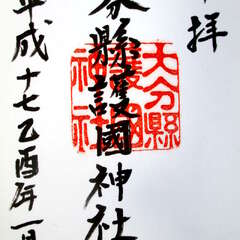 拝
分縣護國神社
大分縣護國神社
平成十七乙酉年一月